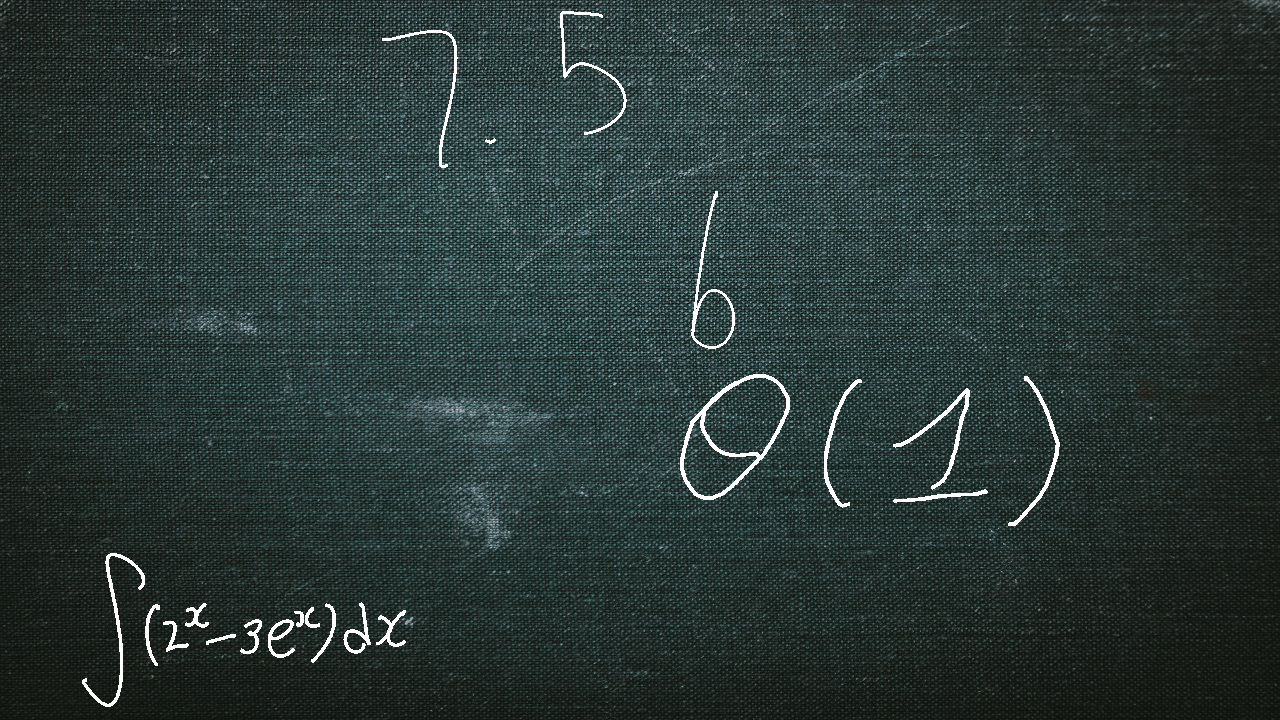 7.5
6
θ(1)
∫(2^x-3e^x)dx